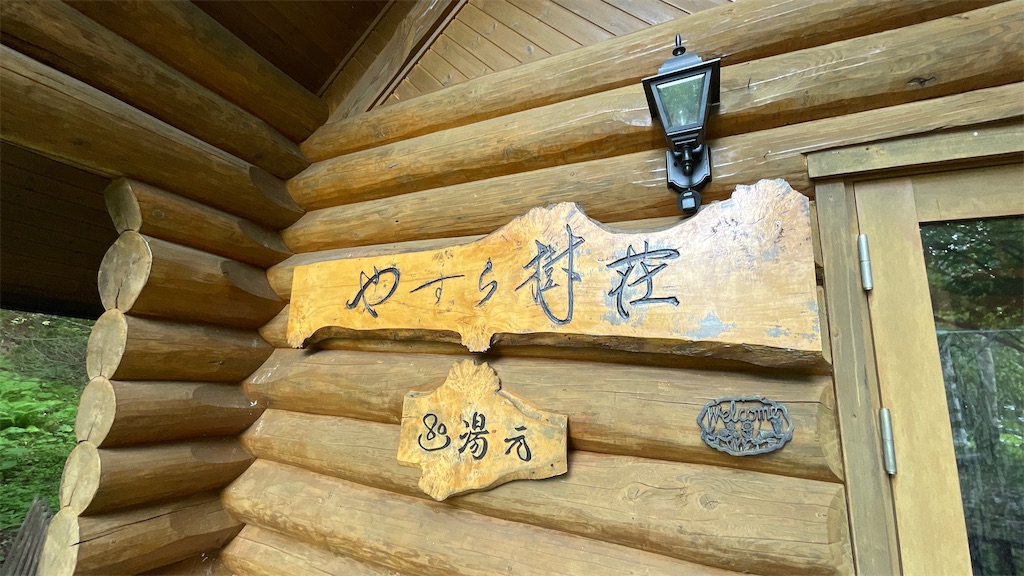 やすら樹荘
湯元
Welcome